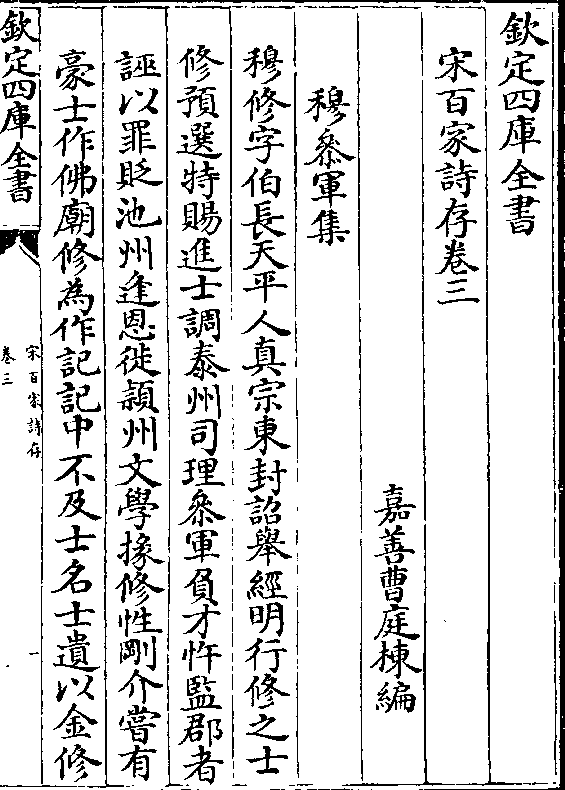 欽定四庫全書
宋百家詩存卷三
嘉善曹庭棟編
穆參軍集
穆修字伯長天平人真宗東封詔舉經明行修之士
修預選特賜進士調泰州司理參軍負才忤監郡者
誣以罪貶池州逢恩徙潁州文學掾修性剛介嘗有
豪士作佛廟修為作記記中不及士名士遺以金修
欽定四庫全書
宋百家詩存
卷三
一